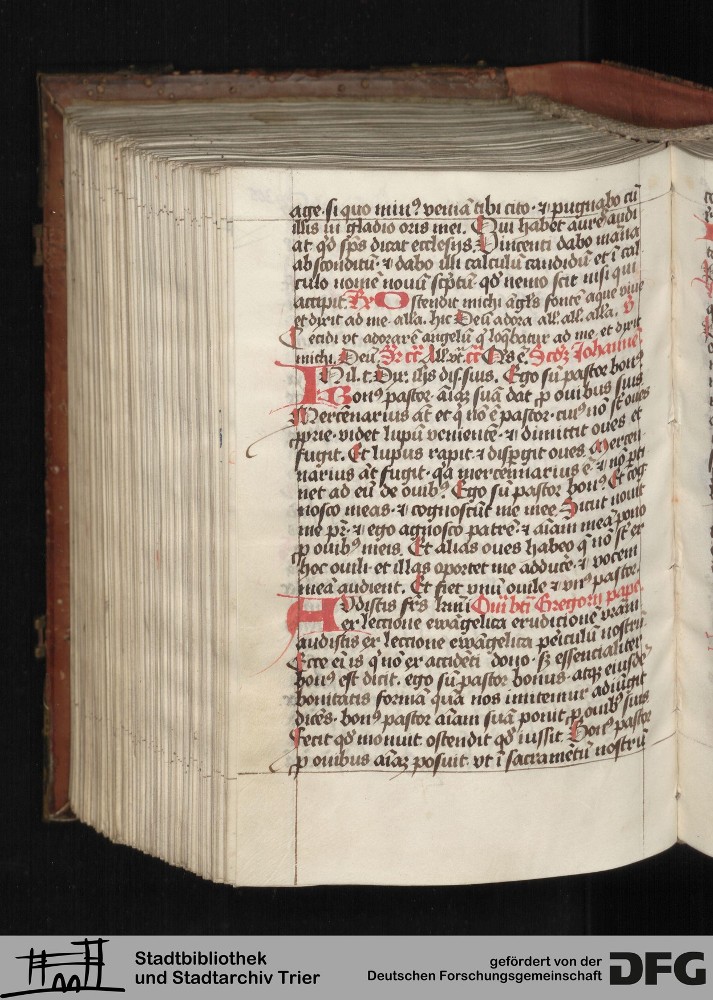 age. si quo min⁹ veniā tibi cito · ⁊ pugnabo cū
illis in gladio oris mei. Qui habet aurē audi
at q̄d sp̄s dicat ecclesijs. Vincenti dabo māna
absconditū · ⁊ dabo illi calculū candidū et ī cal
culo nomē novū sc̄ptū · q̄d nemo scit nisi qui
accipit. Rx Ostendit michi āgl̄s fontē aque vive
et dixit ad me · alla. hic Deū adora all. all. alla. V
Cecidi vt adorarē angelū q̄ loq̄batur ad me et dixit
michi. Deū
In il. t. Dix. ih̄s dis. suis. Ego sū pastor bon⁹
Bon⁹ pastor · āiaʒ suā dat ꝓ ouibus suis
Mercēnarius āt et q̄ nō ē pastor · cui⁹ nō sūt oues
ꝓprie · videt lupū venientē · ⁊ dimittit oues et
fugit. Et lupus rapit · ⁊ disꝑgit oues. Mercen
narius āt fugit · q̄a mercennarius ē · ⁊ nō ꝑti
net ad eū de ouib⁹. Ego sū pastor bon⁹. Et cog
nosco meas · ⁊ cognoscūt me mee. Sicut novit
me pr̄ · ⁊ ego agnosco patrē · ⁊ āiam meā pono
ꝓ ouib⁹ meis. Et alias oues habeo q̄ nō sūt ex
hoc ouili · et illas oportet me adducē · ⁊ vocem
meā audient. Et fiet vnū ouile · ⁊ vn⁹ pastor.
Avdistis fr̄s km̄i Om̄ bti Gregorij pape
ex leccione ewāgelica erudicionē vr̄am
audistis ex leccione ewāgelica ꝑiculū nostrū
Ecce eī is q̄ nō ex accidēti dono · sʒ essentialiter
bon⁹ est dicit. ego sū pastor bonus · atqʒ eiusdē
bonitatis formā quā nos imitemur adiūgit
dicēs · bon⁹ pastor āiam suā ponit ꝓ ouib⁹ suis
Fecit q̄d monuit. ostendit q̄d iussit. Bon⁹ pastor
ꝓ ouibus āiaʒ posuit · vt ī sacramētū nostrū
Stadtbibliothek
und Stadtarchiv Trier
gefördert von der
Deutschen Forschungsgemeinschaft
DFG